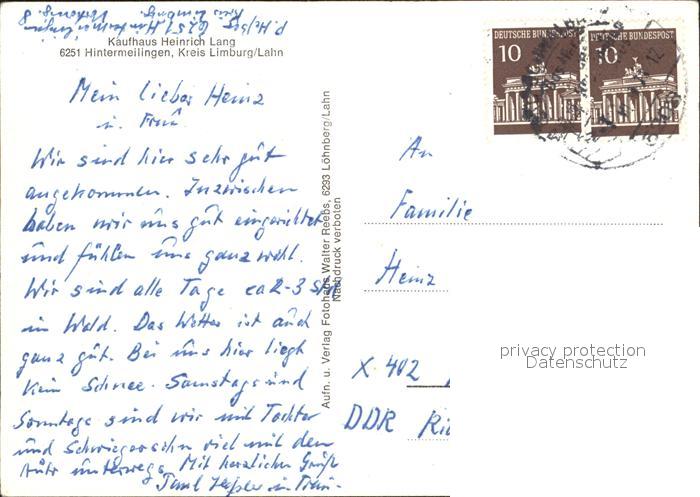 Kreis Limburg
6251 Hintermeilingen
Kaufhaus Heinrich Lang
6251 Hintermeilingen, Kreis Limburg/Lahn
Mein lieber Heinz
u. Frau
Wir sind hier sehr gut
angekommen. Inzwischen
haben wir uns gut eingerichtet
und fühlen uns ganz wohl.
Wir sind alle Tage ca 2-3 Std
im Wald. Das Wetter ist auch
ganz gut. Bei uns hier liegt
kein Schnee. Samstags und
Sonntags sind wir mit Tochter
und Schwiegersohn viel mit dem
Auto unterwegs. Mit herzlichen Grüß
Paul u. Frau.
Aufn. u. Verlag Fotohaus Walter Reebs, 6293 Löhnberg/Lahn
Nachdruck verboten
DEUTSCHE BUNDESPOST
10
DEUTSCHE BUNDESPOST
10
An
Familie
Heinz
X 402
DDR
privacy protection
Datenschutz